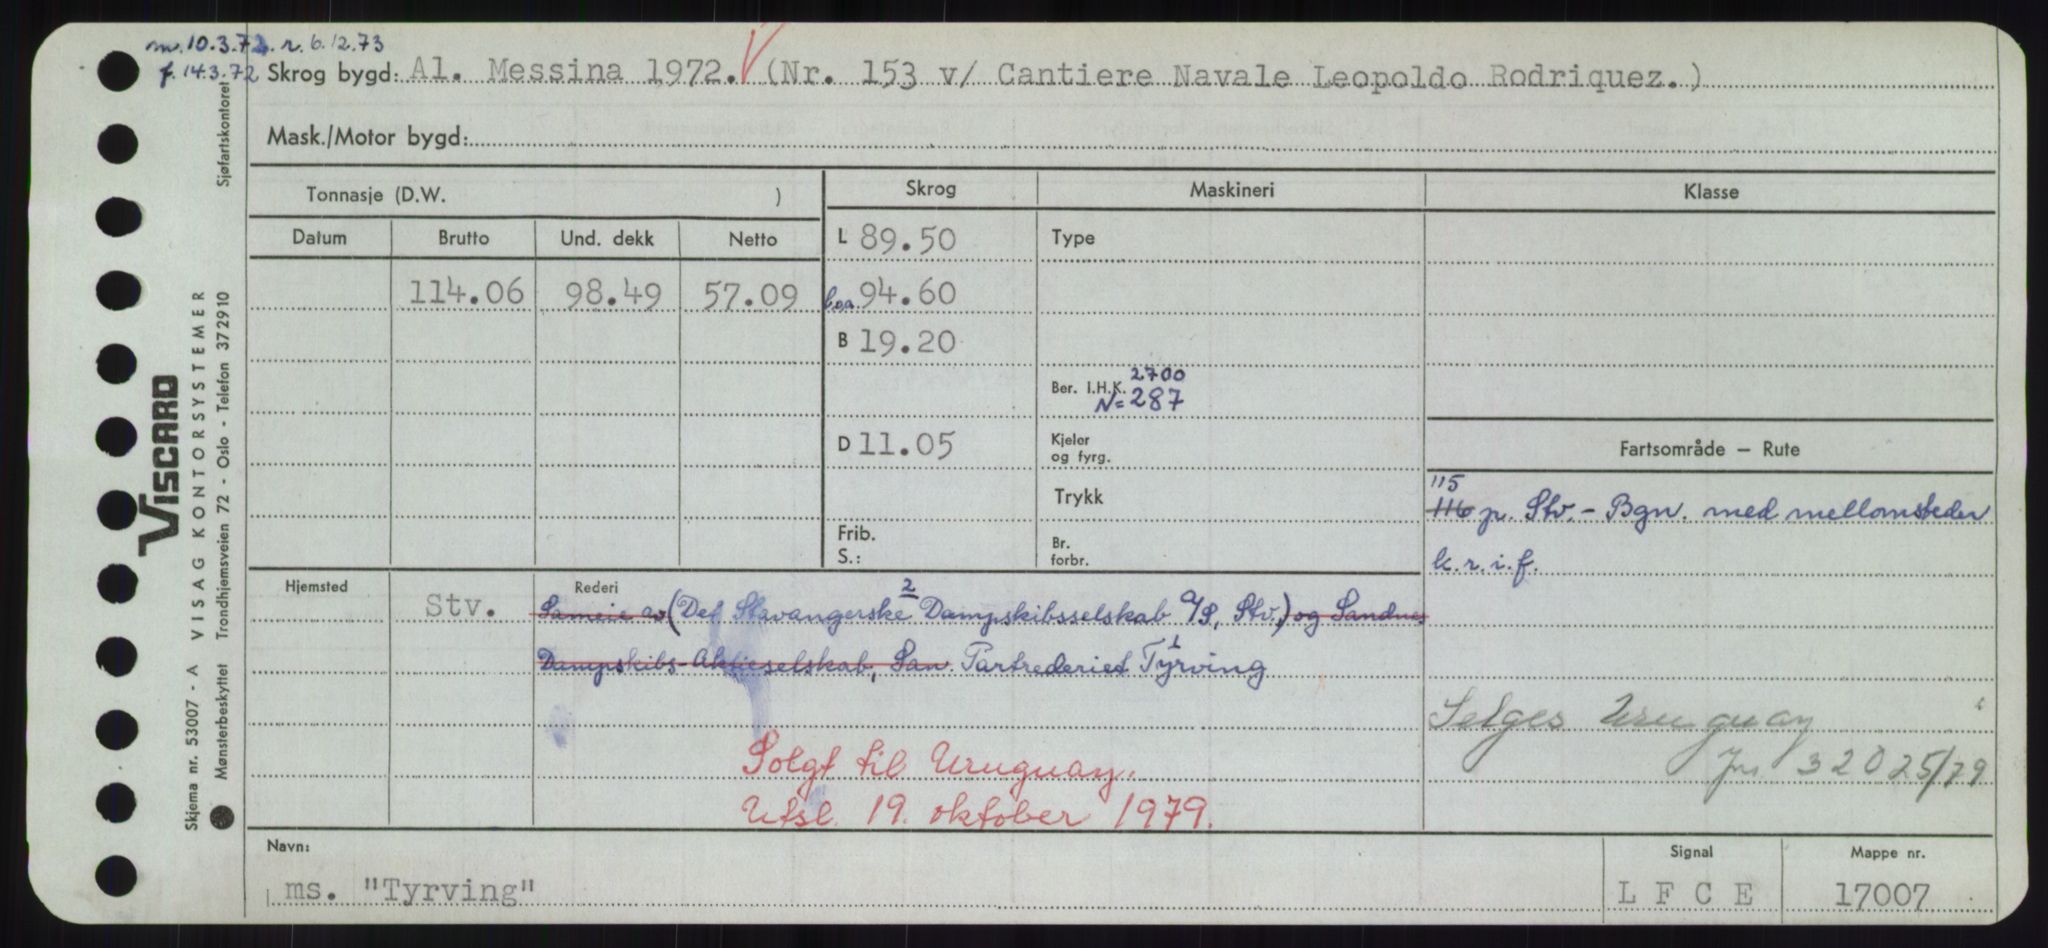 m. 10.3.72. r. 6.12.73
f. 14.3.72 Skrog bygd: Al. Messina 1972. (Nr. 153 v/ Cantiere Navale Leopoldo Rodriquez.)
Mask./Motor bygd:
Tonnasje (D.W. )
Skrog Maskineri Klasse
Datum Brutto Und. dekk Netto L 89.50 Type
114.06 98.49 57.09 loa. 94.60
B 19.20
2700
Ber. I.H.K.
N = 287
D 11.05 Kjeler og fyrg. Fartsområde — Rute
Trykk 115
116 p. Stv. - Bgn. med mellomsteder
Frib.
S.: Br. forbr. k.r.i.f.
Hjemsted Stv. Rederi 2
Sameie av (Det Stavangerske Dampskibsselskab A/S, Stv.) og Sandnes
1
Dampskibs-Aktieselskab, San. Partrederiet Tyrving
Selges Uruguay
Jnr 32025/79
Solgt til Uruguay.
Utsl. 19. oktober 1979.
Navn: Signal Mappe nr.
ms. "Tyrving" LFCE 17007
Skjema nr. 53007 - A VISAG KONTORSYSTEMER Sjøfartskontoret
Mønsterbeskyttet Trondhjemsveien 72 - Oslo - Telefon 372910
VISCARD